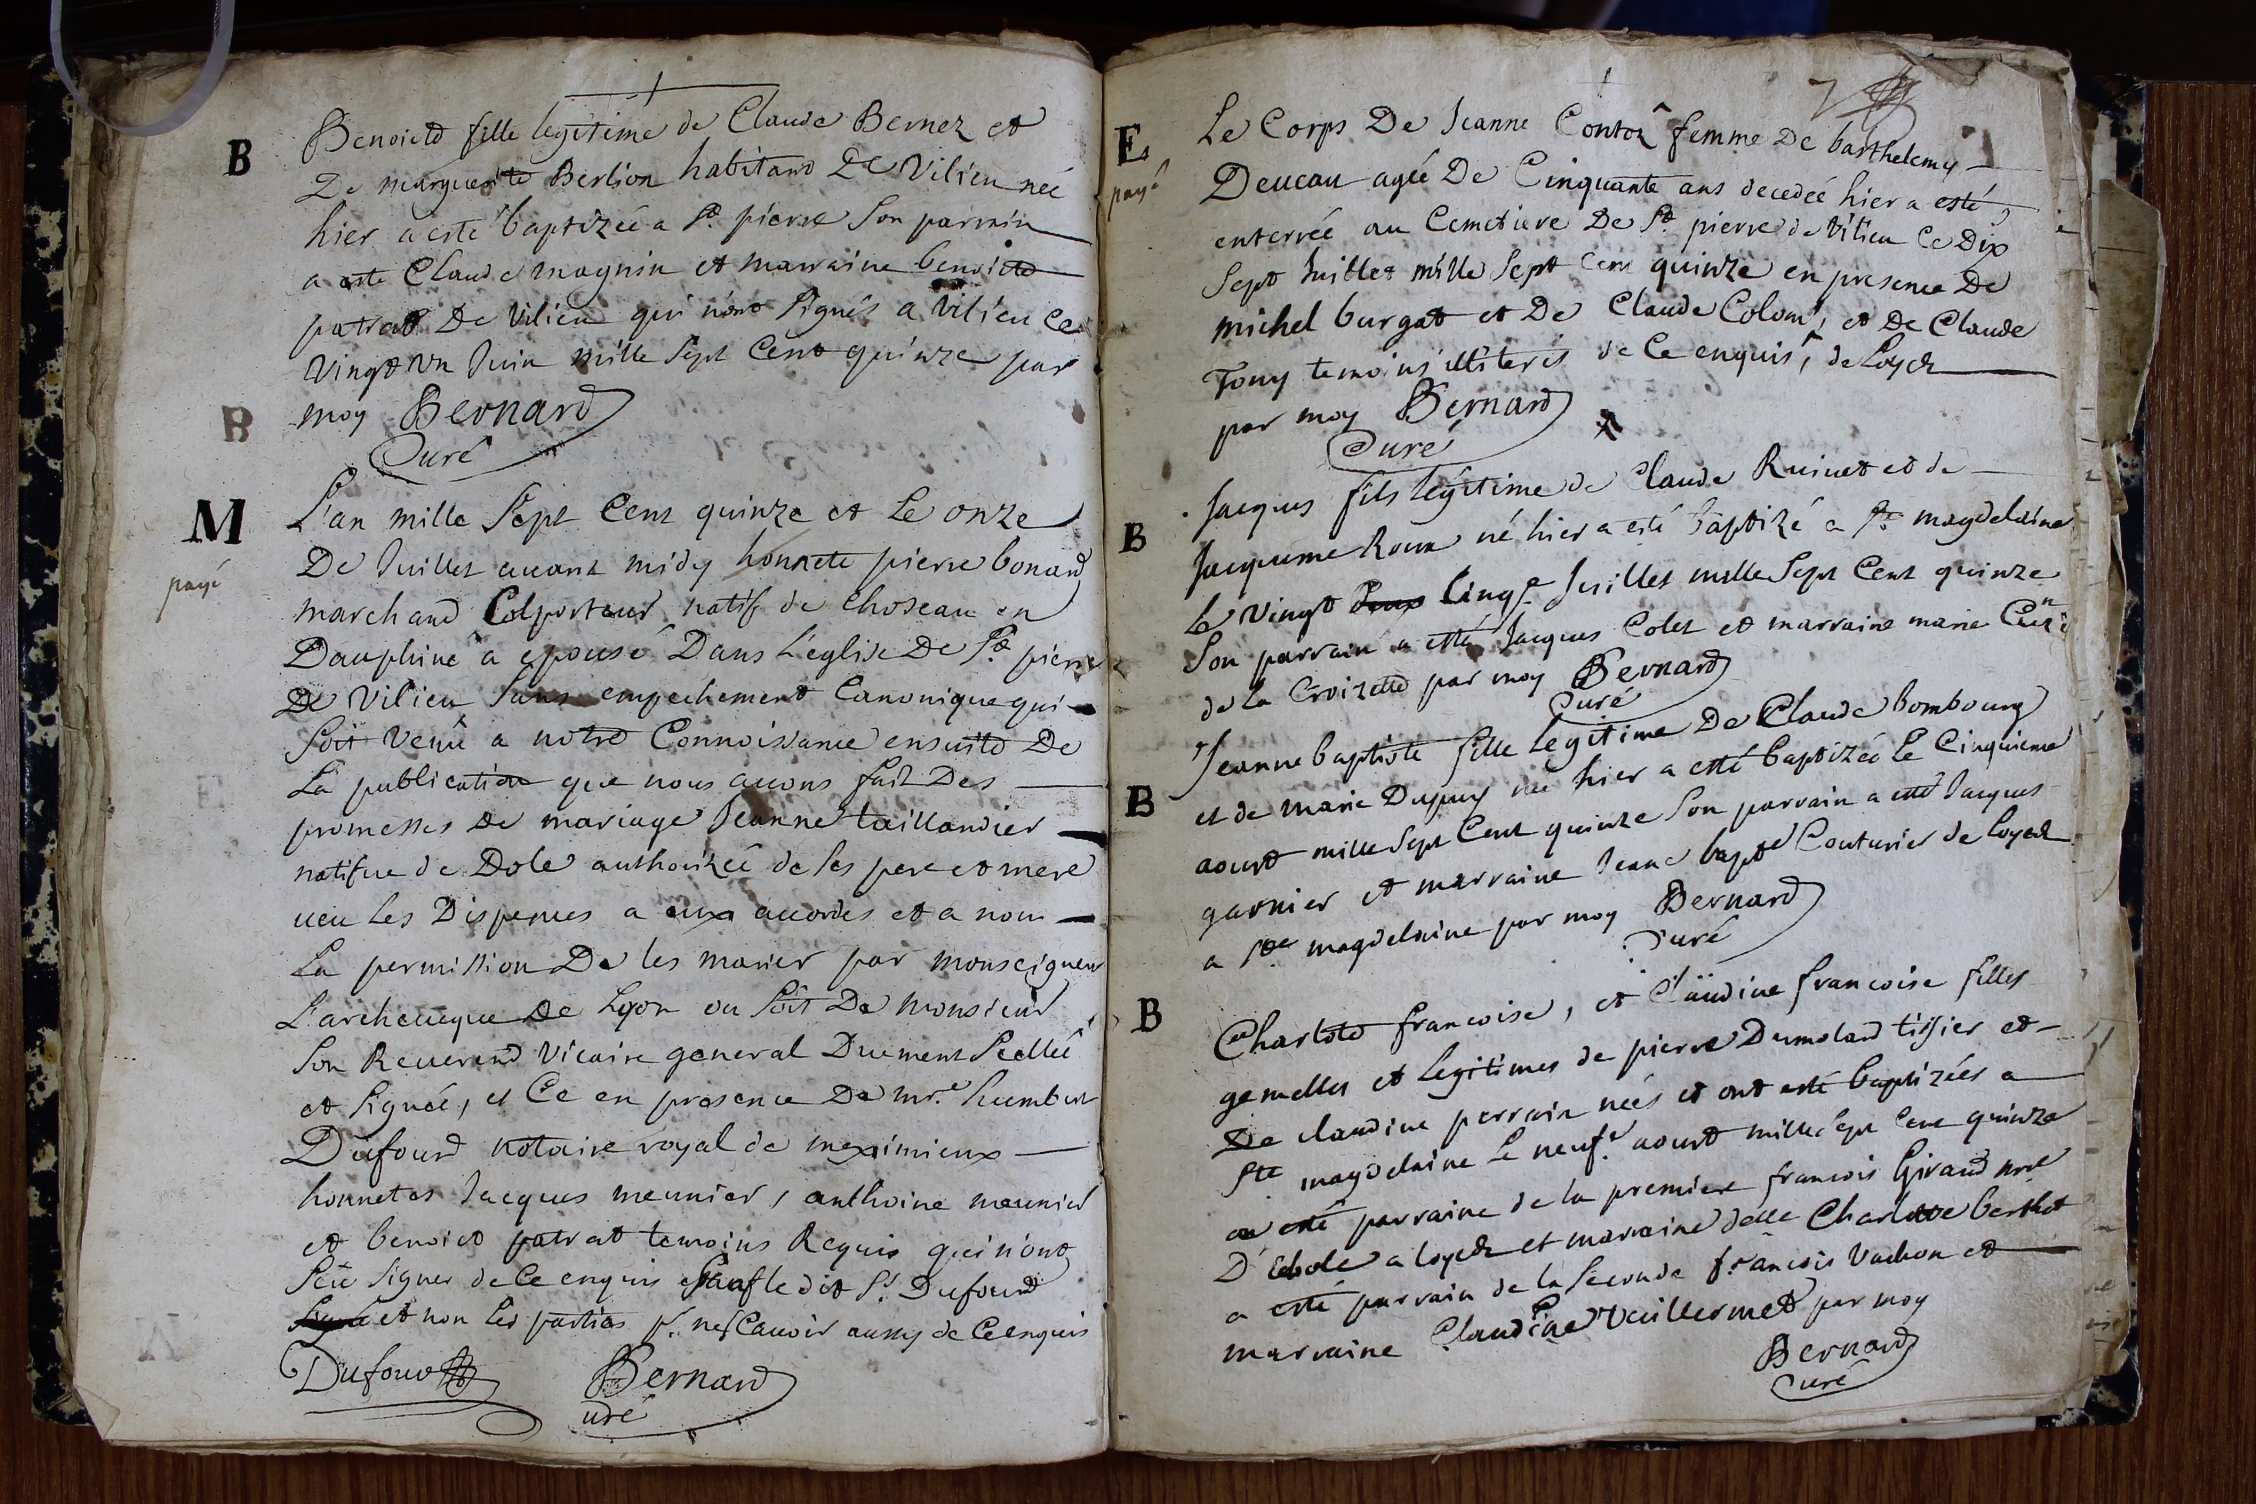 B
Benoicte fille legitime de Claude Bernez et
De marguerite Berlion habitans De Vilieu neé
hier a esté baptizeé a St. pierre Son parrain
a este Claude magnin et marraine benoicte
patrat De Vilieu qui n'ont signés a Vilieu Ce
Vingt Un Juin mille Sept Cent quinze par
moy Bernard
Curé
B
M
payé
L'an mille Sept Cent quinze et Le onze
De Juillet auant midy honnete pierre bonard
marchand Colporteur natif de Choseau en
Dauphiné a epousé Dans L'eglise De St. pierre
De Vilieu Sans empechement Canonique qui
Soit Venû a notre Connoissance ensuite De
La publication que nous auons fait Des
promesses De mariage Jeanne taillandier
natifue de Dole authorizeé de ses pere et mere
ueu les Dispenses a eux accordes et a nous
La permission De les marier par monseigneur
L'archeueque De Lyon ou Soit De monsieur
Son Reuerend Vicaire general Duement Scelleé
et Signeé, et Ce en presence De mre. humbert
Dufour notaire royal de meximieux
honnetes Jacques meunier, anthoine meunier
et benoict patrat temoins Requis qui n'ont
Sceû Signer de Ce enquis Sauf le dit Sr. Dufour
et non les parties pr. ne Scauoir aussy de Ce enquis
Dufour Bernard
curé
7
E
payé
Le Corps De Jeanne femme De barthelemy
Deucau ageé De Cinquante ans decedeé hier a esté
enterreé au Cemetiere De St. pierre de Vilieu Ce Dix
Sept Juillet mille Sept Cent quinze en presence De
michel burgat et De Claude Colom, et De Claude
Tony temoins illiteres de Ce enquis, de Loyes
par moy Bernard
Curé
B
Jacques fils legitime de Claude Ruinet et de
Jacqueme Roux né hier a esté baptizé a Ste. magdelaine
Le Vingt Deux Cinqe. Juillet mille Sept Cent quinze
Son parrain a esté Jacques Colet et marraine marie
de la Croizette par moy Bernard
Curé
B
Jeanne baptiste fille legitime De Claude bombourg
et de marie Dupuy neé hier a esté baptizeé Le Cinquieme
aoust mille Sept Cent quinze Son parrain a esté Jacques
garnier et marraine Jeane bapte Couturier de Loyes
a Ste magdelaine par moy Bernard
Curé
B
Charlote francoise, et Claudine francoise filles
gemelles et legitimes de pierre Dumolard tissier et
De claudine perrain neés et ont esté baptizeés a
Ste magdelaine Le neufe. aoust mille Sept Cent quinze
a esté parraine de la premiere francois Giraud mre
D'Ecole a loyes et marraine delle Charlotte berthet
a esté parrain de la Seconde francois Vachon et
marraine Claudine Vuillermet par moy
Bernard
Curé